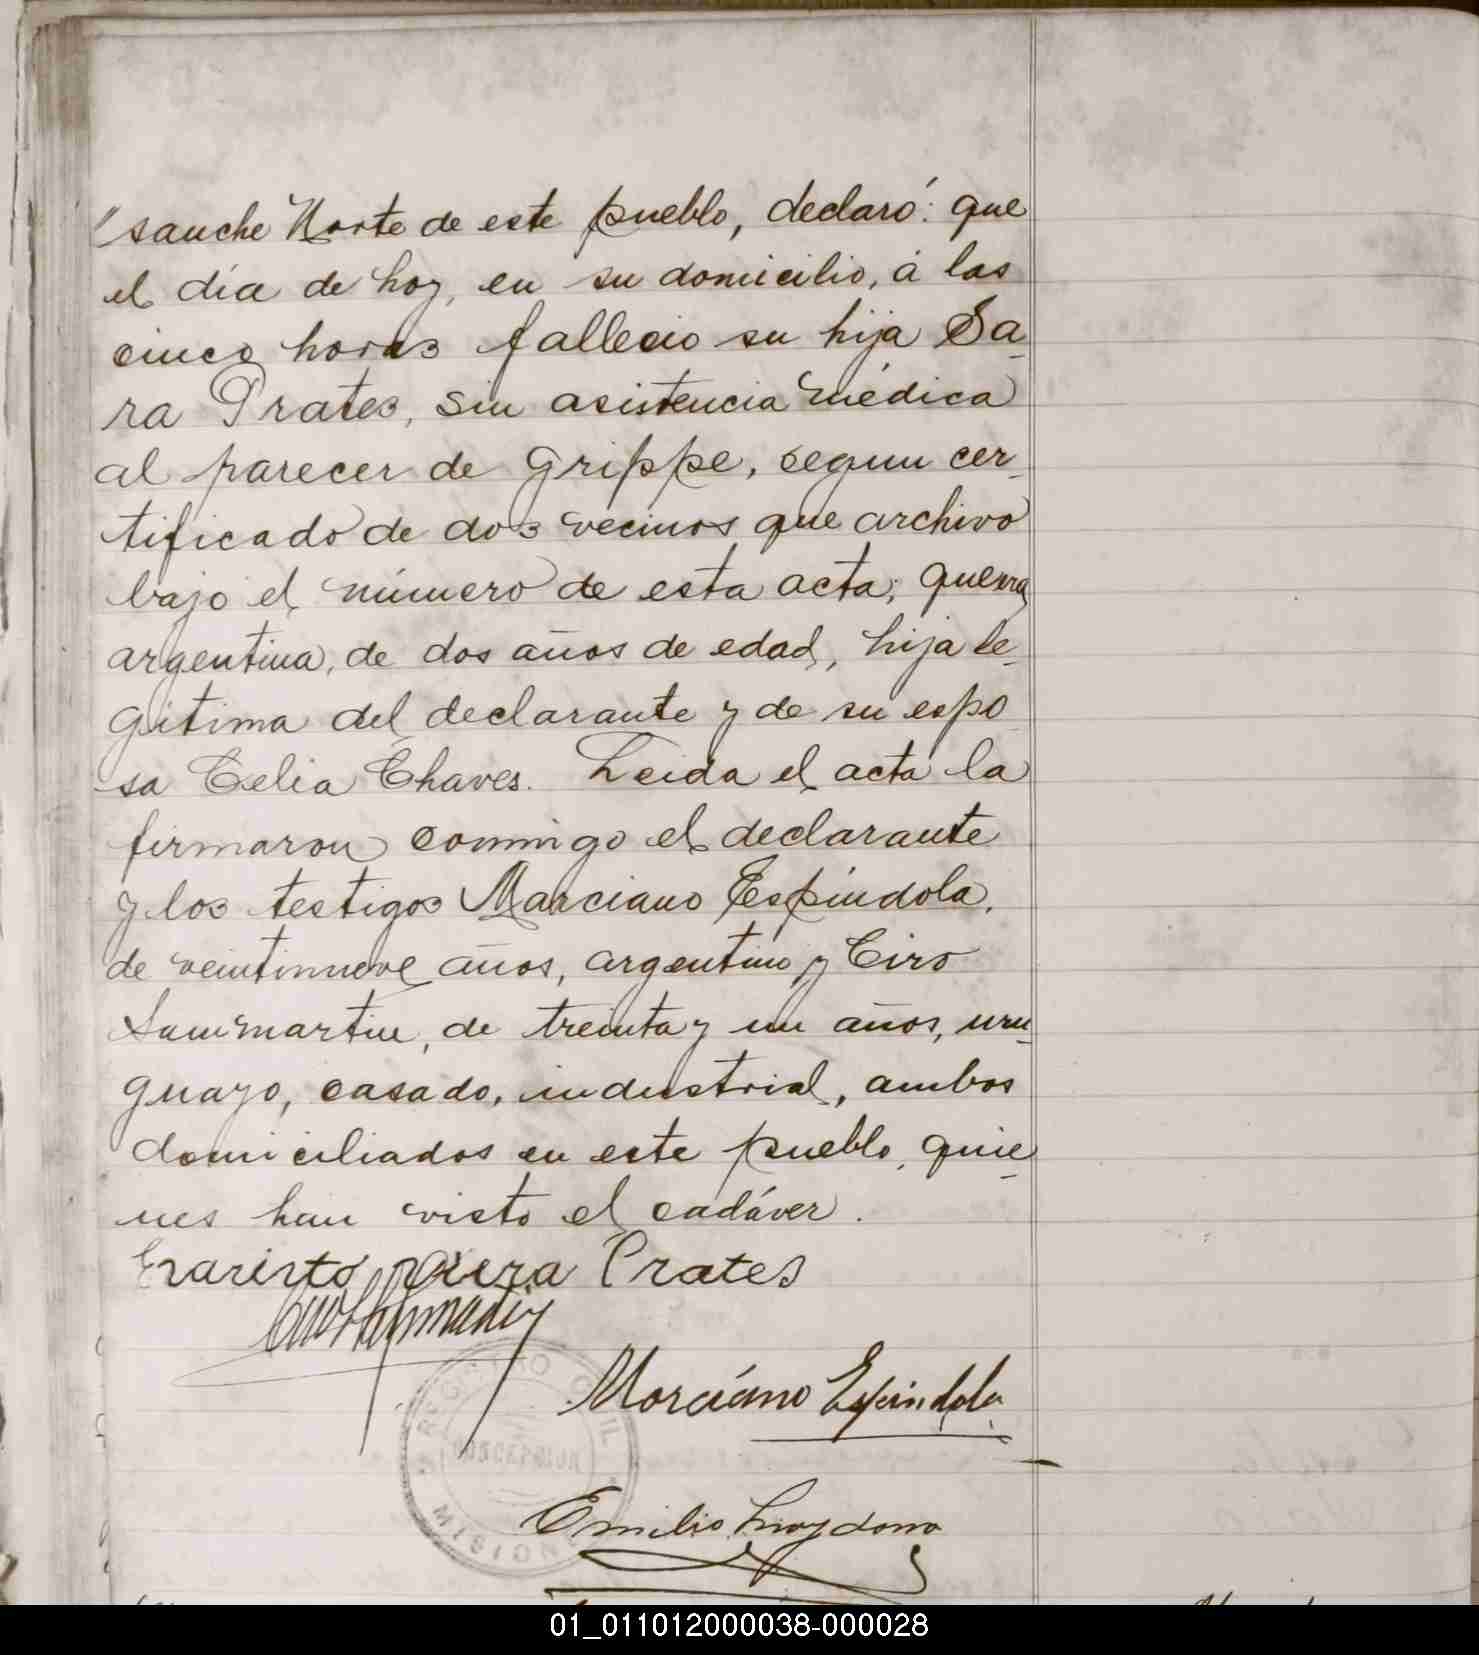 "sanche Norte de este pueblo, declaró: que
el día de hoy, en su domicilio, á las
cinco horas fallecio su hija Sa-
ra Prates, sin asistencia médica
al parecer de grippe, segun cer-
tificado de dos vecinos que archivo
bajo el número de esta acta; que era
argentina, de dos años de edad, hija le-
gitima del declarante y de su espo
sa Celia Chaves. Leida el acta la
firmaron conmigo el declarante
y los testigos Marciano Espíndola,
de veintinueve años, argentino y Ciro
Sanmartin, de treinta y un años, uru-
guayo, casado, industrial, ambos
domiciliados en este pueblo, quie-
nes han visto el cadáver.
Evaristo Prates
Marciano Espindola
REGISTRO CIVIL
MISIONES
Emilio
01_011012000038-000028